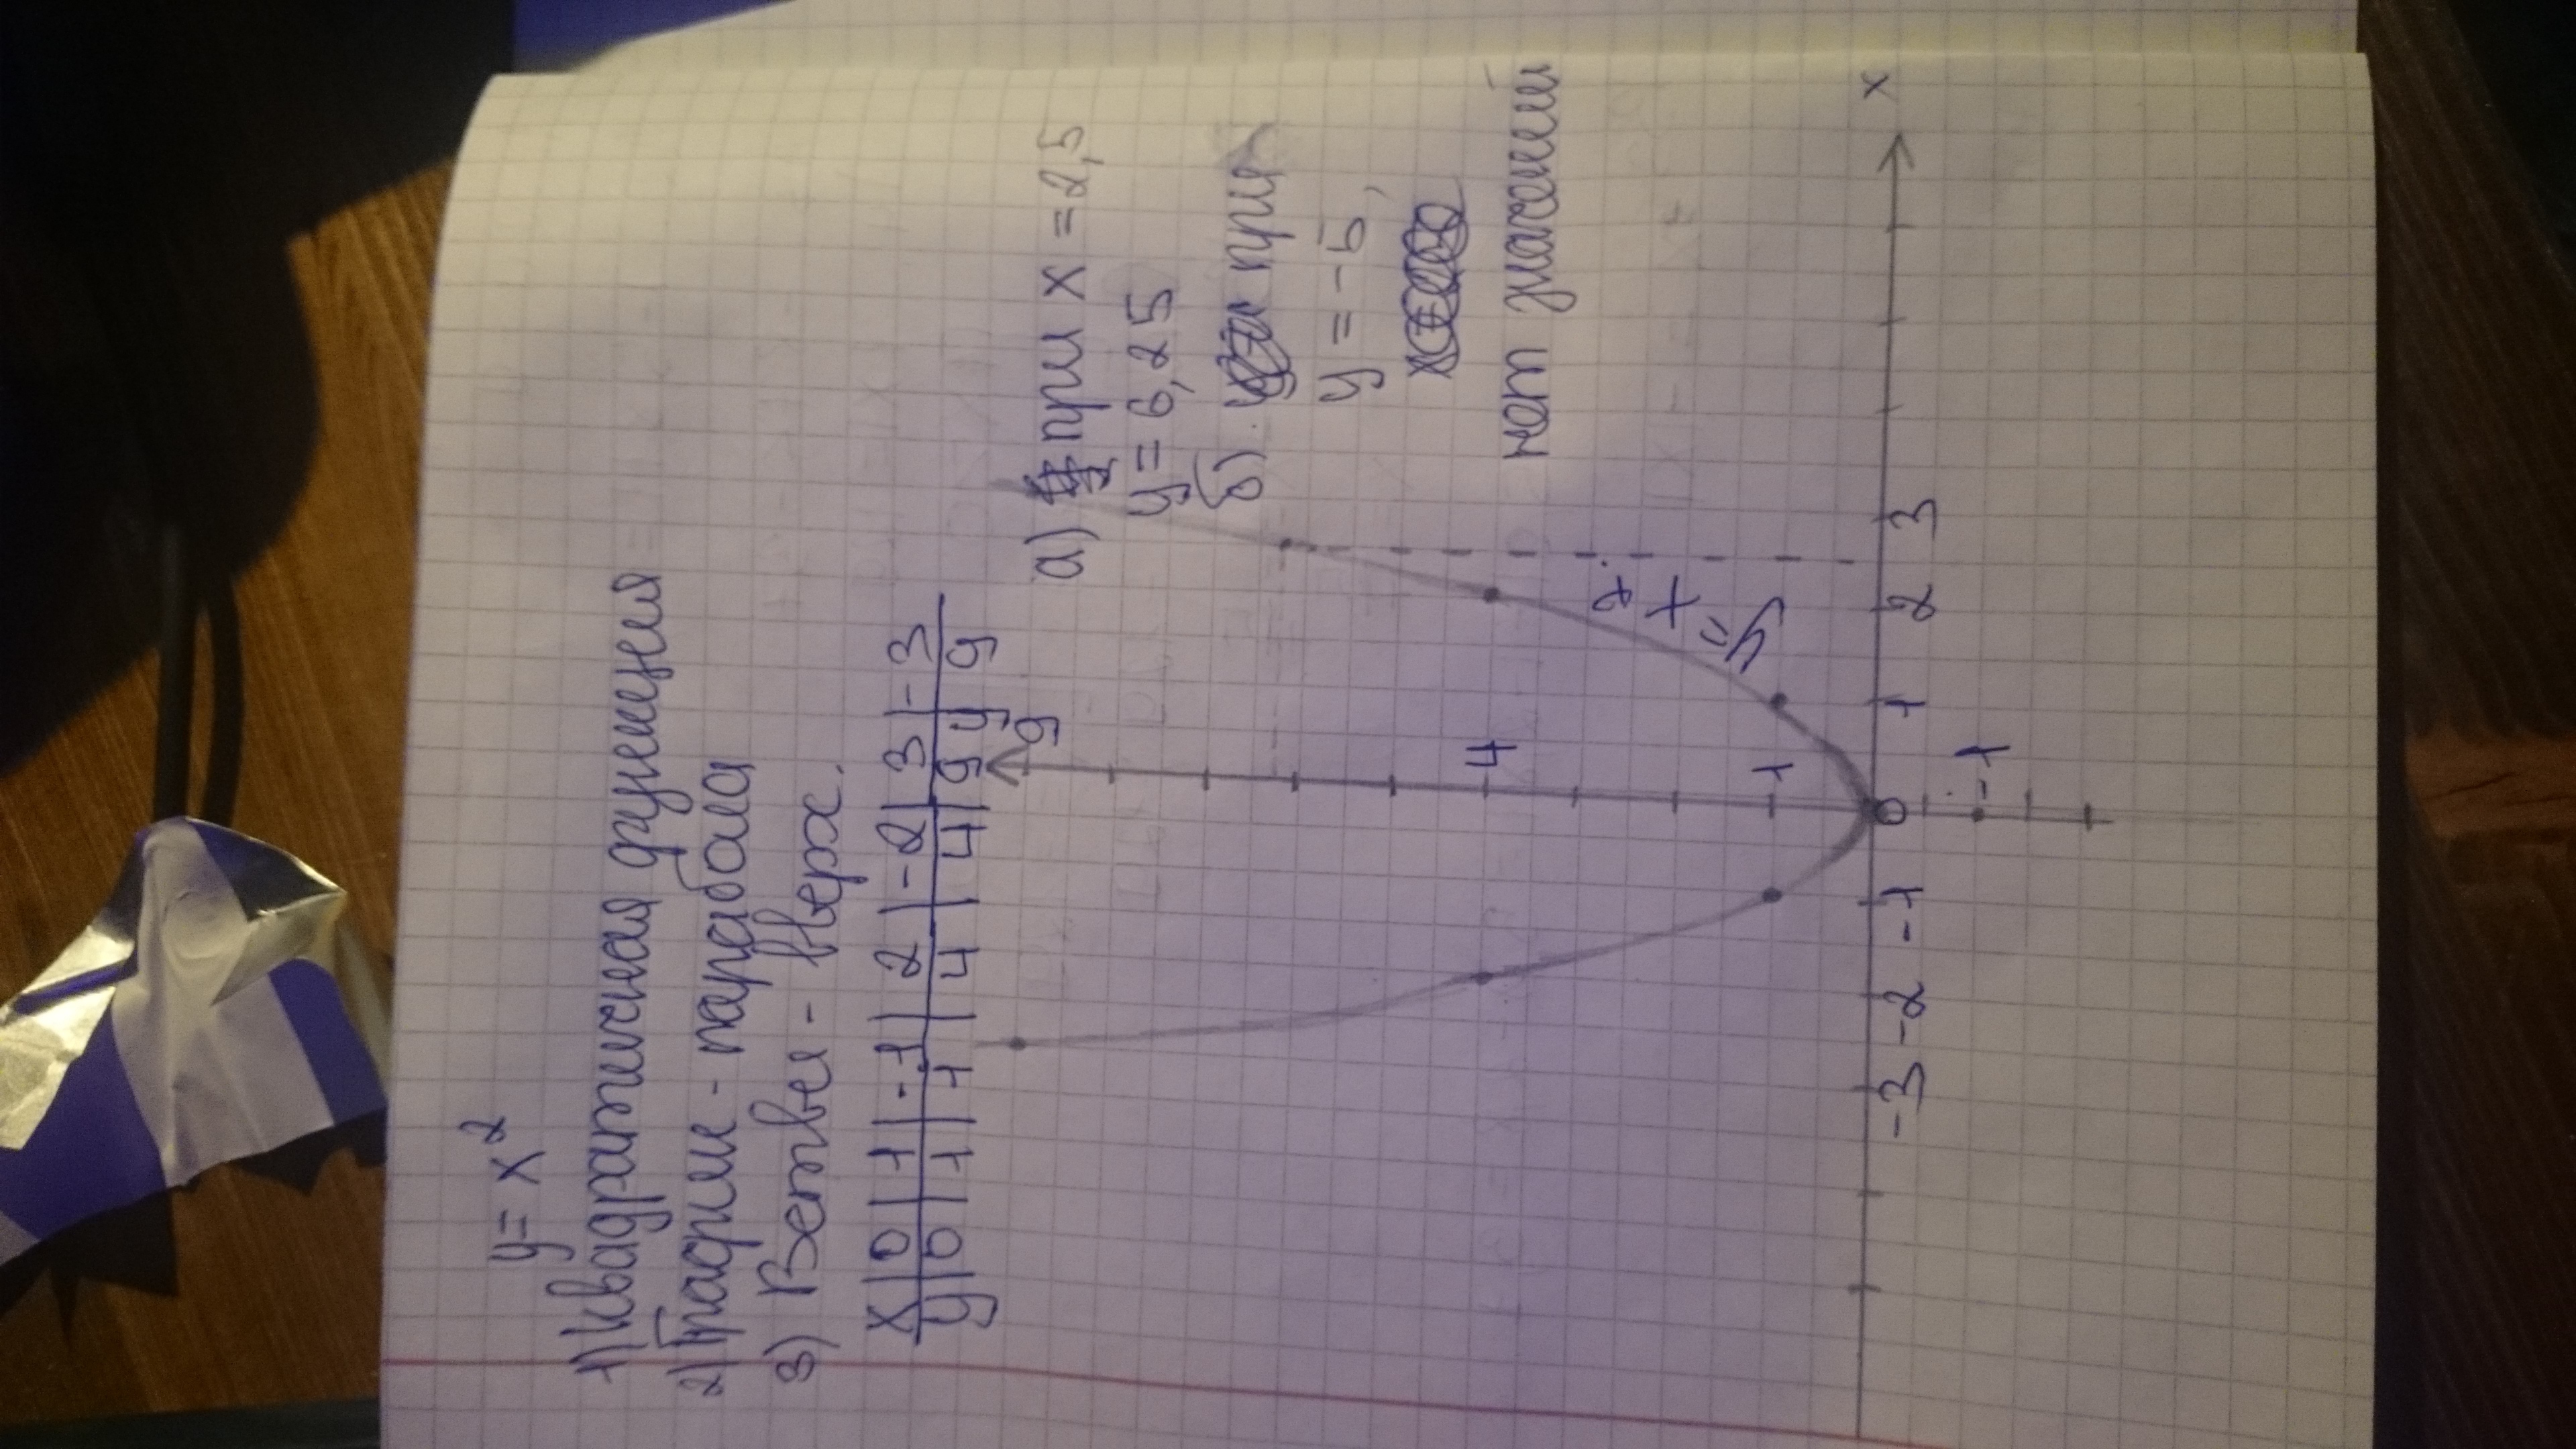 y = x²
1) Квадратичная функция
2) График - парабола
3) Ветви - вверх.
x | 0 | 1 | -1 | 2 | -2 | 3 | -3
y | 0 | 1 | 1 | 4 | 4 | 9 | 9
y
9
а) при x = 2,5
y = 6,25
б) при
y = -5,
нет значений
4
1
y = x²
-3 -2 -1 0 1 2 3 x
-1